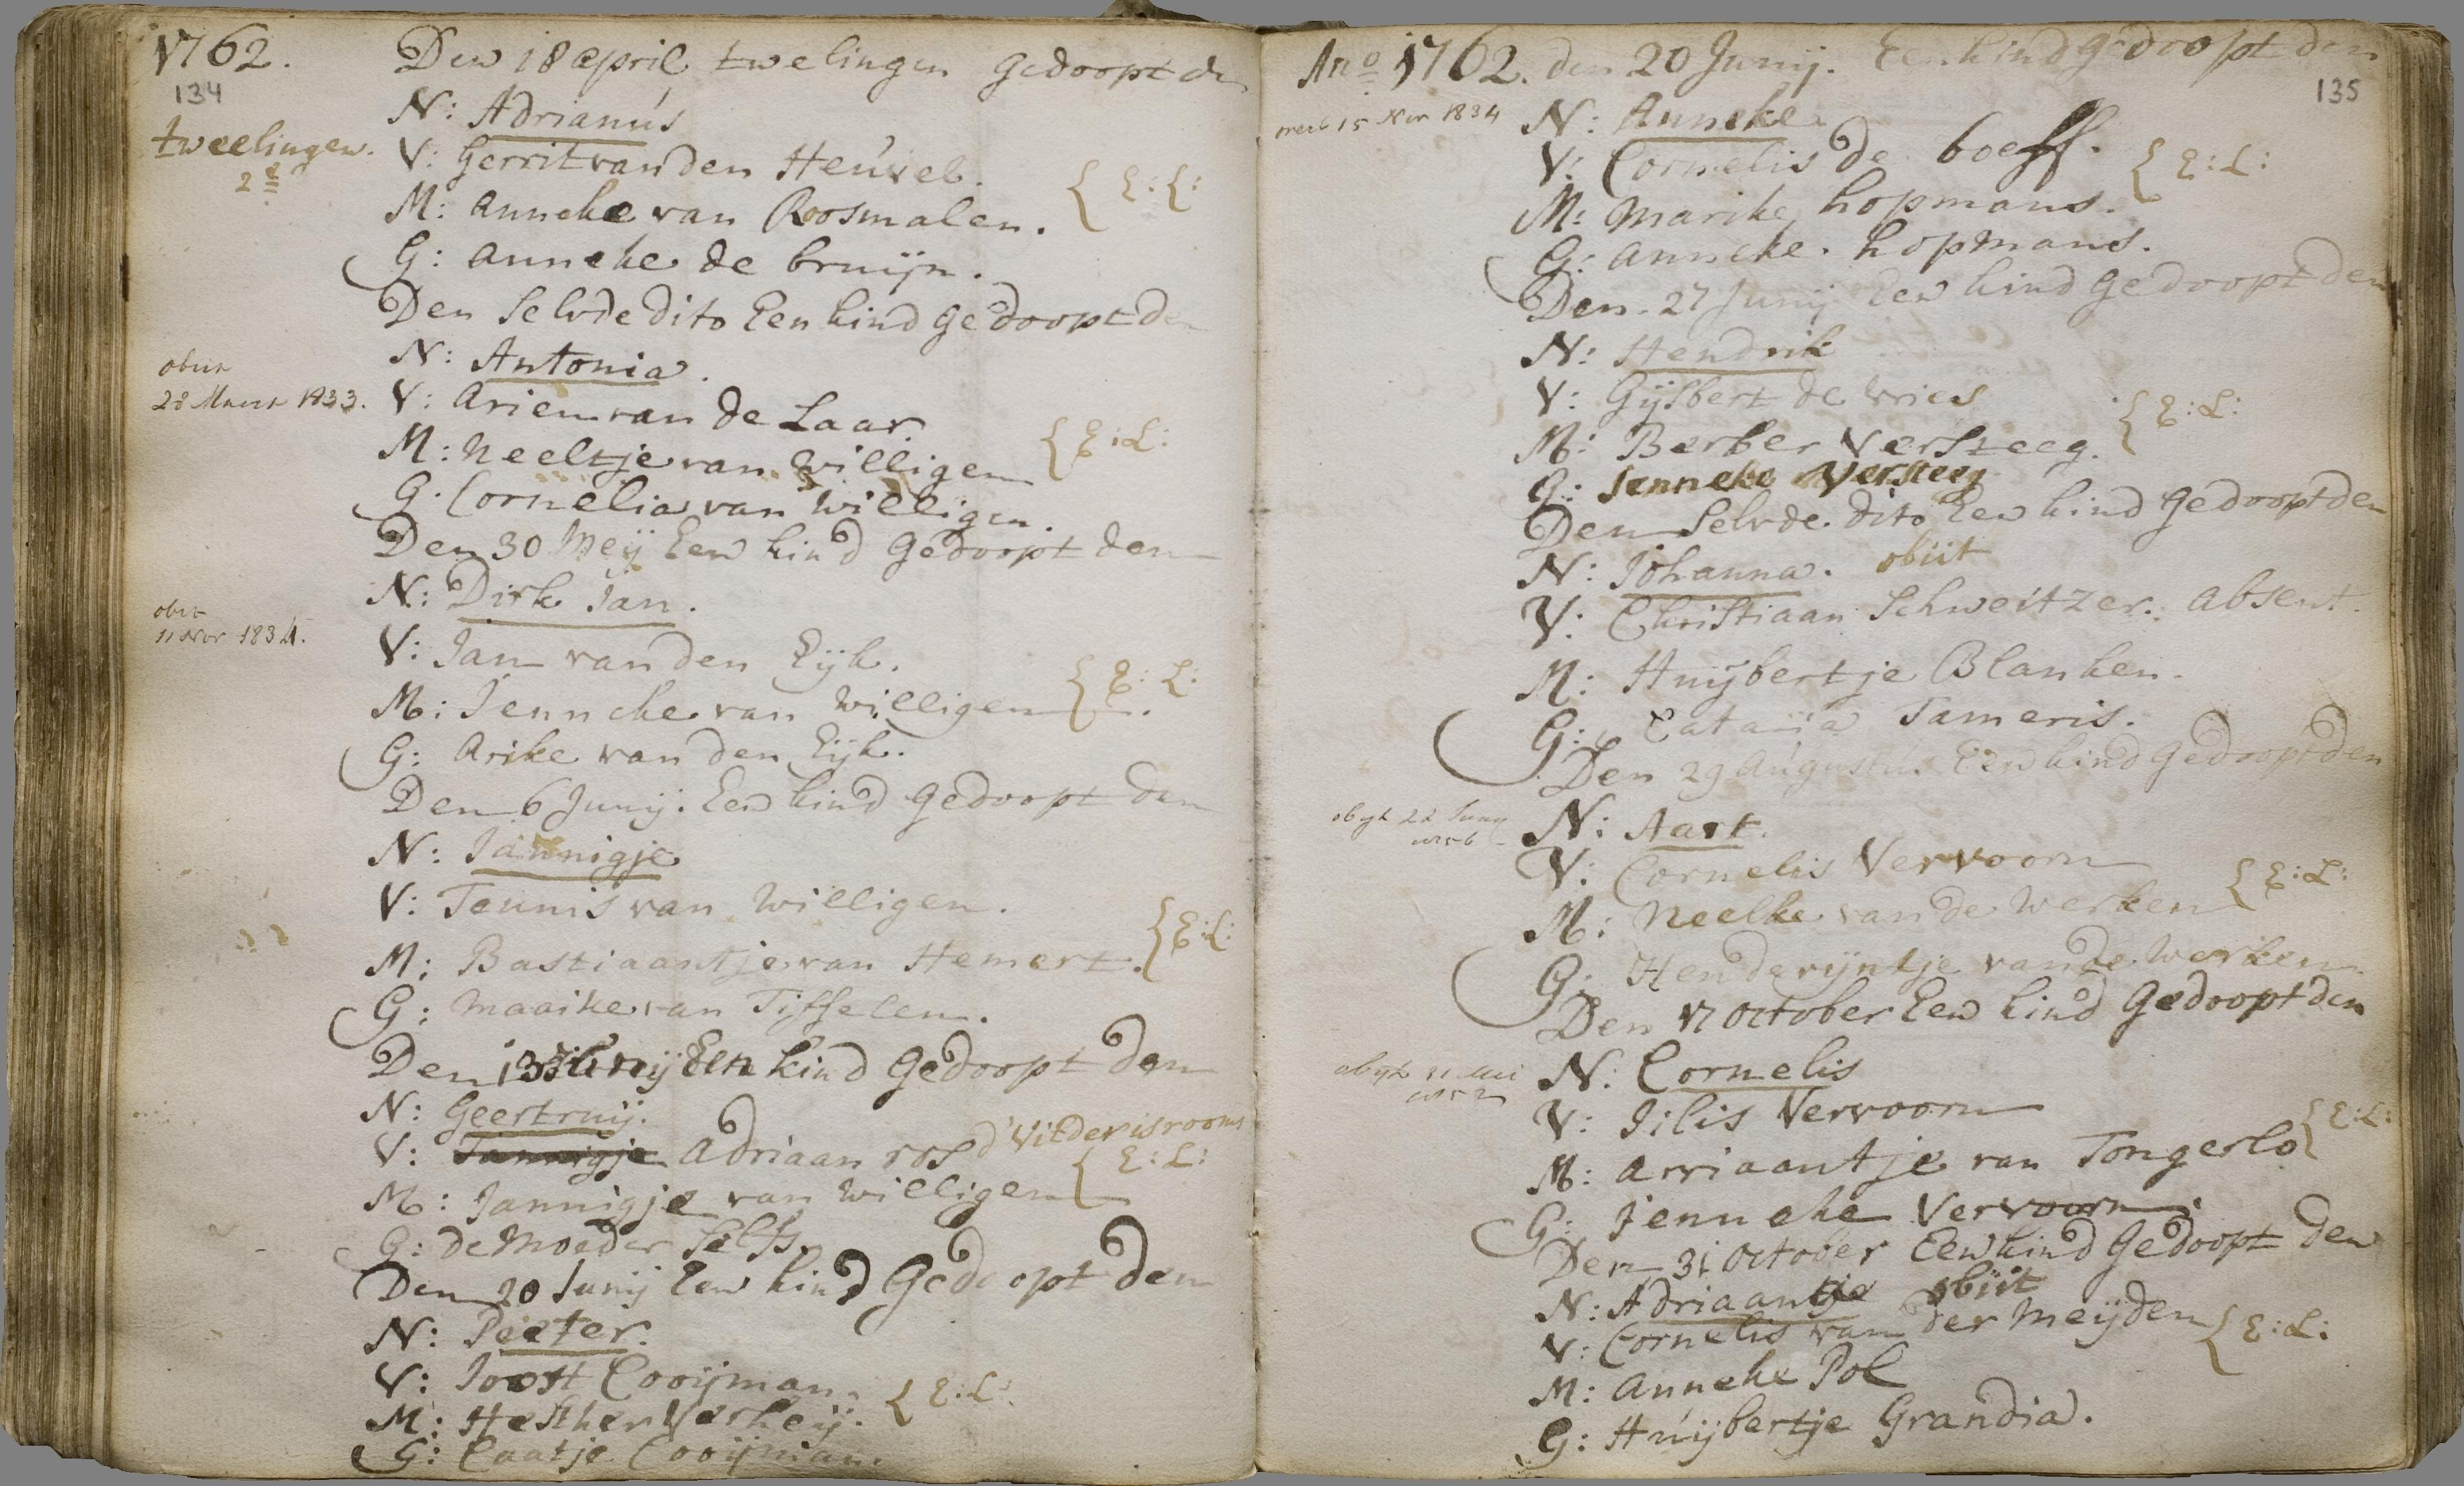 1762. Den 18 april twelingen gedoopt den
134
tweelingen.
2e
N: Adrianus
V: Gerrit van den Heuvel. { E: L:
M: Anneke van Roosmalen.
G: Anneke de bruijn.
Den Selvde dito Een kind gedoopt den
N: Antonia.
obiit
28 Maart 1833.
V: Arien van de Laar.
M: Neeltje van Willigen { E: L:
G. Cornelia van Willigen.
Den 30 Meij Een kind gedoopt den
N: Dirk Jan.
obit
11 Nov 1834.
V: Jan van den Eijk.
M: Jenneke van Willigen. { E: L:
G: Arike van den Eijk.
Den 6 Junij. Een kind gedoopt den
N: Jannigje
V: Teunis van Willigen.
M: Bastiaantje van Hemert. { E: L:
G: Maaike van Tisselen.
Den 13 Junij Een kind gedoopt den
N: Geertruij.
V: Jannigje Adriaan ros d'Vader is rooms
M: Jannigje van Willigen { E: L:
G: de Moeder Selfs.
Den 20 Junij Een kind Gedoopt den
N: Peeter.
V: Joost Cooijman.
M: Hesther Verheij. { E: L:
G: Caatje Cooijman.
Ano 1762. den 20 Junij. Een kind gedoopt den
135
15 Nov 1834
N: Anneke
V: Cornelis de boeff.
M: Marike hopmans. { E: L:
G: Anneke. hopmans.
Den. 27 Junij Een kind gedoopt den
N: Hendrik
V: Gijsbert de Vries
M: Berber Versteeg. { E: L:
G: Janneke Versteeg
Den Selvde. dito Een kind gedoopt den
N: Johanna. obiit
V: Christiaan Schweitzer. absent.
M: Huijbertje Blanken.
G: Tameris.
Den 29 Augustus Een kind gedoopt den
obijt 22 Junij
N: Aart.
V: Cornelis Vervoorn
M: Neelke van de Werken { E: L:
G. Henderijntje van de Werken.
Den 17 October Een kind Gedoopt den
obijt 11 Mei
N: Cornelis
V: Jilis Vervoorn
M: Arriaantje van Tongerlo { E: L:
G: Jenneke Vervoorn.
Den 31 October Een kind Gedoopt den
N: Adriaantje obiit
V: Cornelis van der Meijden { E: L:
M: Anneke Pol
G: Huijbertje Grandia.